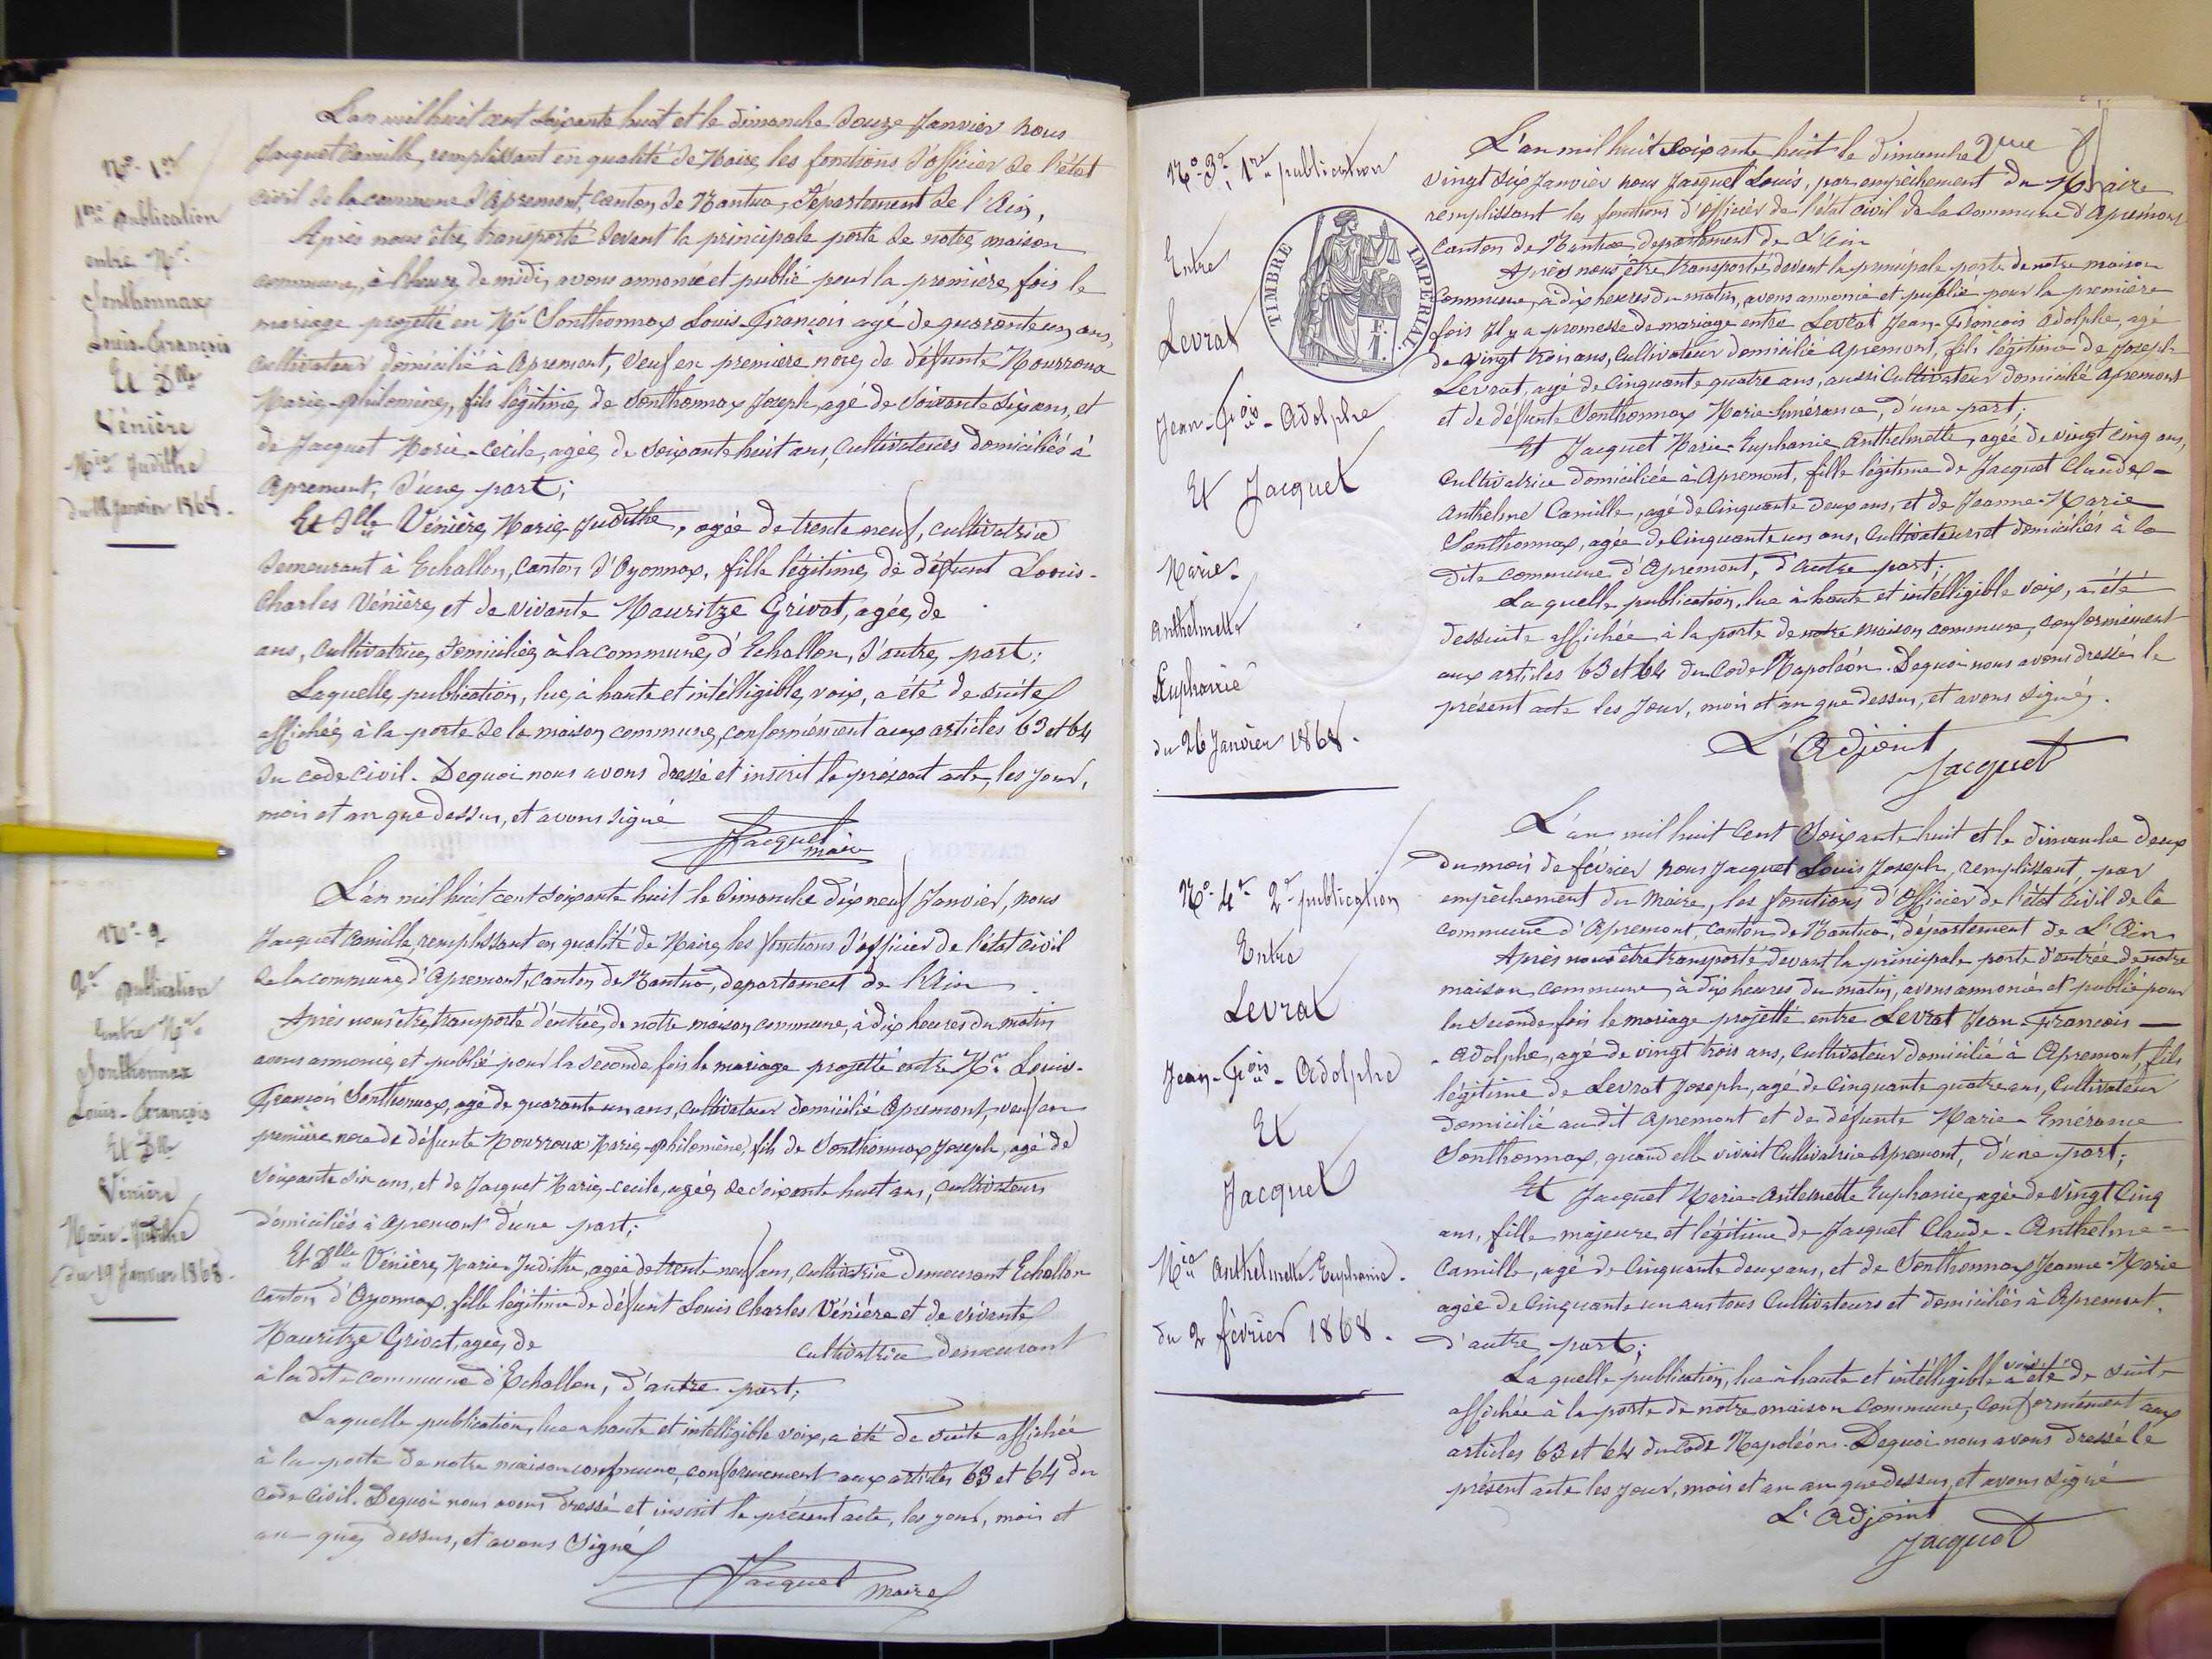 No. 1er
1ère publication
entre Mr.
Sonthonnax
Louis-François
Et Dlle
Vénière
Mie Judithe
du 12 Janvier 1868.
L'an mil huit cent soixante huit et le dimanche douze Janvier nous
Jacquet Camille, remplissant en qualité de Maire, les fonctions d'officier de l'état
civil de la commune d'Apremont, Canton de Nantua, département de l'Ain,
Après nous être transporté devant la principale porte de notre maison
commune, à l'heure de midi, avons annoncé et publié pour la première fois le
mariage projetté en Mr. Sonthonnax Louis-François agé de quarante un ans,
cultivateur domicilié à Apremont, Veuf en première noce de défunte Mourroux
Marie-philomène, fils légitime de Sonthonnax Joseph, agé de soixante six ans, et
de Jacquet Marie-Cécile, agée de soixante huit ans, cultivateurs domiciliés à
Apremont, d'une part;
Et Dlle Vénière, Marie-Judithe, agée de trente neuf, cultivatrice
demeurant à Echallon, Canton d'Oyonnax, fille légitime de défunt Louis-
Charles Vénière, et de vivante Mauritze Grivat, agée, de
ans, Cultivatrice, domiciliée à la commune d'Echallon, d'autre part;
Laquelle publication, lue, à haute et intélligible voix, a été de suite
affichée à la porte de la maison commune, conformément aux articles 63 et 64
du code civil. Dequoi nous avons dressé et inscrit le présent acte, les jour,
mois et an que dessus, et avons signé
Jacquet
maire
No. 2
2e publication
Entre Mr.
Sonthonnax
Louis-François
Et Dlle
Vénière
Marie-Judithe
du 19 Janvier 1868.
L'an mil huit cent soixante huit le dimanche dix neuf Janvier, nous
Jacquet Camille, remplissant en qualité de Maire, les fonctions d'officier de l'état civil
de la commune d'Apremont, Canton de Nantua, departement de l'Ain
Après nous être transporté d'entrée de notre maison commune, à dix heures du matin
avons annoncé et publié pour la seconde fois le mariage projetté entre Mr. Louis-
François Sonthonnax, agé de quarante un ans, cultivateur domicilié Apremont, veuf en
première noce de défunte Mourroux Marie-philomène, fils de Sonthonnax Joseph, agé de
soixante six ans, et de Jacquet Marie-Cecile, agée de soixante huit ans, cultivateurs
domiciliés à Apremont d'une part;
Et Dlle Vénière, Marie-Judithe, agée de trente neuf ans, Cultivatrice demeurant Echallon
canton d'Oyonnax, fille légitime de défunt Louis Charles Vénière et de vivante
Mauritze Grivat, agée, de cultivatrice demeurant
à la dite commune d'Echallon, d'autre part;
Laquelle publication, lue a haute et intelligible voix, a été de suite affichée
à la porte de notre maison commune, conformément aux articles 63 et 64 du
code civil. Dequoi nous avons dressé et inscrit le présent acte, les jour, mois et
an que dessus, et avons signé
Jacquet maire
No. 3e, 1re publication
Entre
Levrat
Jean-Fçois-Adolphe
Et Jacquet
Marie-
Anthelmette
Euphanie
du 26 Janvier 1868.
TIMBRE IMPERIAL
2me
L'an mil huit soixante huit le dimanche
vingt six Janvier nous Jacquet Louis, par empêchement du Maire
remplissant les fonctions d'officier de l'état civil de la commune d'Apremont
Canton de Nantua département de L'Ain
Après nous être transporté devant la principale porte de notre maison
Commune, à dix heures du matin, avons annoncé et publié pour la première
fois Il y a promesse de mariage entre Levrat Jean-François Adolphe, agé
de vingt trois ans, Cultivateur domicilié Apremont, fils légitime de Joseph
Levrat, agé de Cinquante quatre ans, aussi Cultivateur domicilié Apremont
et de défunte Sonthonnax Marie-Emérance, d'une part;
Et Jacquet Marie-Euphanie Anthelmette, agée de vingt cinq ans,
Cultivatrice domiciliée à Apremont, fille légitime de Jacquet Claude-
Anthelme Camille, agé de Cinquante deux ans, et de Jeanne-Marie
Sonthonnax, agée de Cinquante un ans, Cultivateurs et domiciliés à la
dite commune d'Apremont, d'autre part;
La quelle publication, lue à haute et intélligible voix, a été
dessuite affichée à la porte de notre maison commune, conformément
aux articles 63 et 64 du Code Napoléon. Dequoi nous avons dressé le
présent acte les Jour, mois et an que dessus, et avons signés.
L'Adjoint
Jacquet
No. 4e 2e publication
Entre
Levrat
Jean-Fçois-Adolphe
Et
Jacquet
Mie Anthelmette-Euphanie.
du 2 février 1868.
L'an mil huit Cent Soixante huit et le dimanche deux
du mois de février nous Jacquet Louis Joseph, remplissant, par
empêchement du Maire, les fonctions d'Officier de l'état civil de la
commune d'Apremont, Canton de Nantua, département de L'Ain
Après nous être transporté devant la principale porte d'entrée de notre
maison commune, à dix heures du matin, avons annoncé et publié pour
la seconde fois le mariage projetté entre Levrat Jean-François
-Adolphe, agé de vingt trois ans, Cultivateur domicilié à Apremont, fils
légitime de Levrat Joseph, agé de Cinquante quatre ans, Cultivateur
domicilié au dit Apremont et de défunte Marie-Emérance
Sonthonnax, quand elle vivait Cultivatrice Apremont, d'une part;
Et Jacquet Marie-Antelmette Euphanie, agée de Vingt Cinq
ans, fille majeure et légitime de Jacquet Claude-Anthelme-
Camille, agé de Cinquante deux ans, et de Sonthonnax Jeanne-Marie
agée de Cinquante un ans tous Cultivateurs et domiciliés à Apremont,
d'autre part;
La quelle publication, lue à haute et intélligible voix a été de suite
affichée à la porte de notre maison Commune, Conformément aux
articles 63 et 64 du Code Napoléon. Dequoi nous avons dressé le
présent acte les Jour, mois et an an que dessus, et avons signé
L'Adjoint
Jacquet